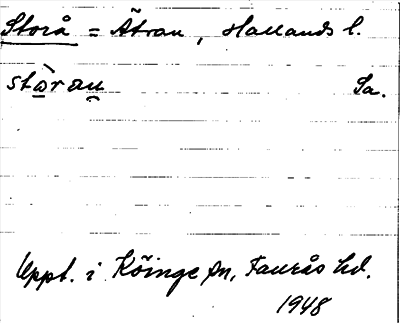 Storå = Ätran, Hallands l.
stòrau Sa.
Uppt. i Köinge sn, Faurås hd.
1948